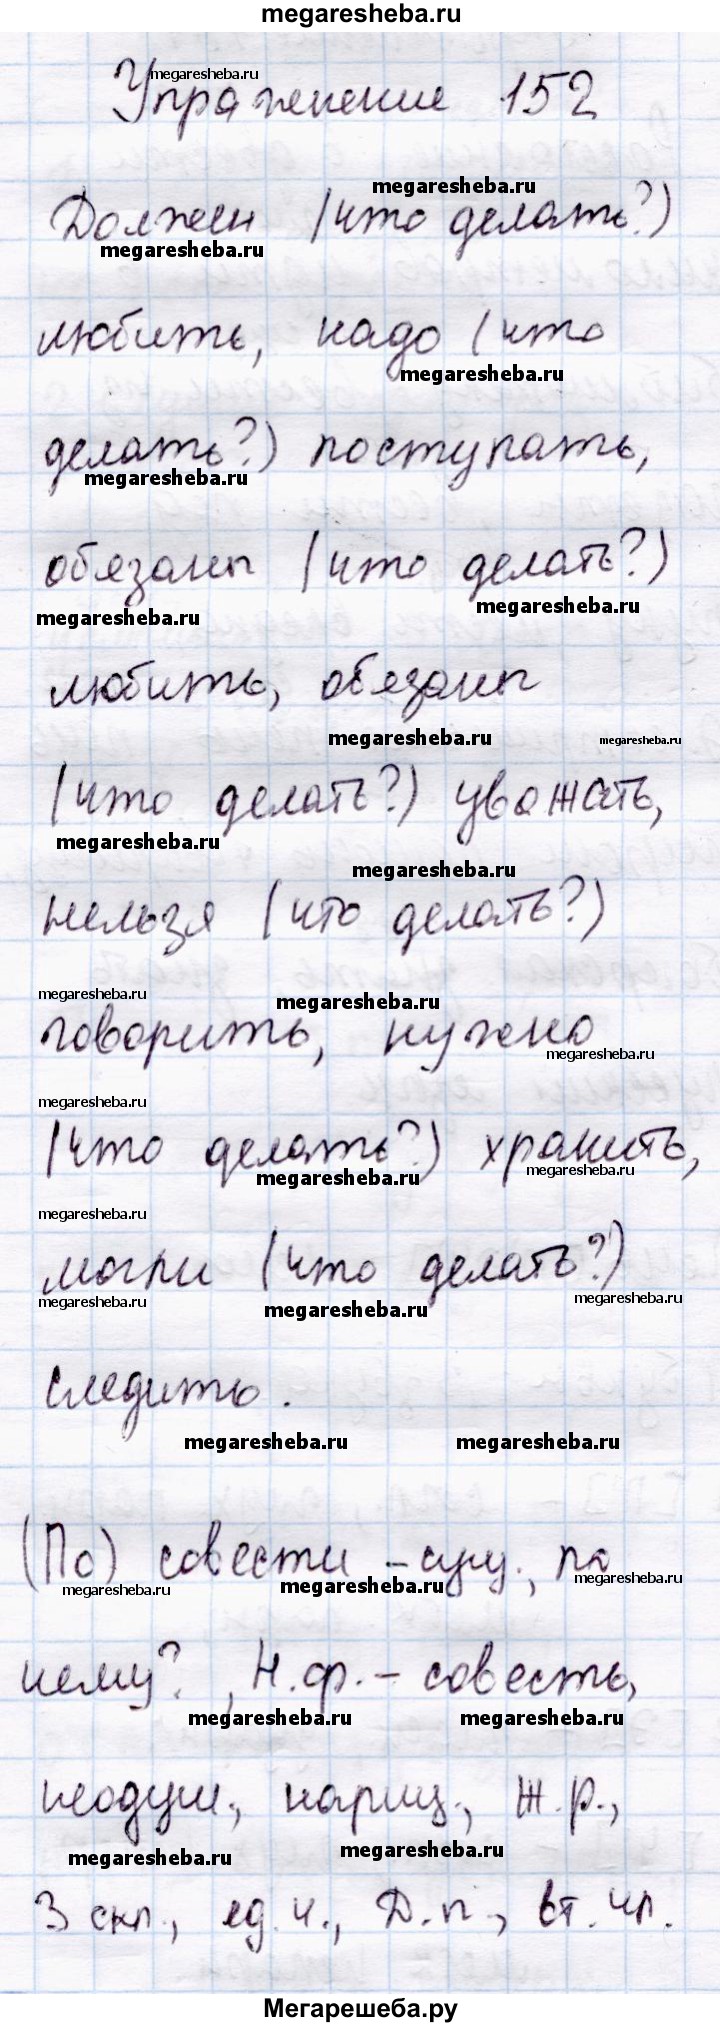 megaresheba.ru
Упражнение 152
Должен (что делать?)
любить, надо (что
делать?) поступать,
обязаны (что делать?)
любить, обязаны
(что делать?) уважать,
нельзя (что делать?)
говорить, нужно
(что делать?) хранить,
могли (что делать?)
следить.
(По) совести – сущ., по
чему?, Н.ф. – совесть,
неодуш., нариц., ж.р.,
3 скл., ед.ч., Д.п., вт. чл.
Мегарешеба.ру